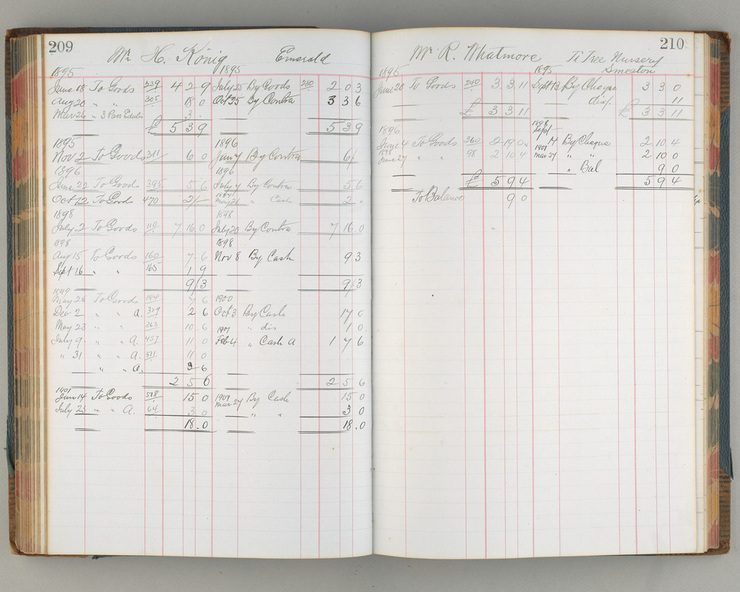 209
Mr H. König Emerald
1895 1895
June 18 To Goods 229 4 2 9 July 25 By Goods 2 0 3
Aug 20 " " 305 18 0 Oct 25 By Contra 3 3 6
£ 5 3 9 5 3 9
1895 1896
Nov 2 To Goods 6 0 Jan 7 By Contra 6/
1896 1896
June 23 To Goods 5 6 July 4 By Contra 5 6
Oct 22 To Goods 470 2/- " Cash 2 -
1898 1898
July 2 To Goods 7 16 0 July 20 By Contra 7 16 0
1898 1898
Aug 15 To Goods 7 6 Nov 8 By Cash 9 3
Sept 16 " " 165 1 9
9/3 9/3
May 26 To Goods 7 6 1900
Dec 2 " " A 2 6 Oct 3 By Cash 17 0
May 23 " " 10 6 " dis 1 0
July 9 " " A 11 0 Feb 4 " Cash A 1 7 6
" 31 " " A 11 0
" " A 3 6
2 5 6 2 5 6
1901
June 14 To Goods 15 0 By Cash 15 0
July 25 " " A. 64 3 0 " " 3 0
18.0 18.0
210
Mr R. Whatmore Ti Tree Nursery
1895 1895 Smeaton
June 28 To Goods 240 3 3 11 Sept 13 By Cheque 3 3 0
11
£ 3 3 11 £ 3 3 11
1896
To Goods By Cheque 2 10 4
June 27 " " 98 2 10 4 " " 2 10 0
" Bal 9 0
£ 5 9 4 5 9 4
To Balance 9 0